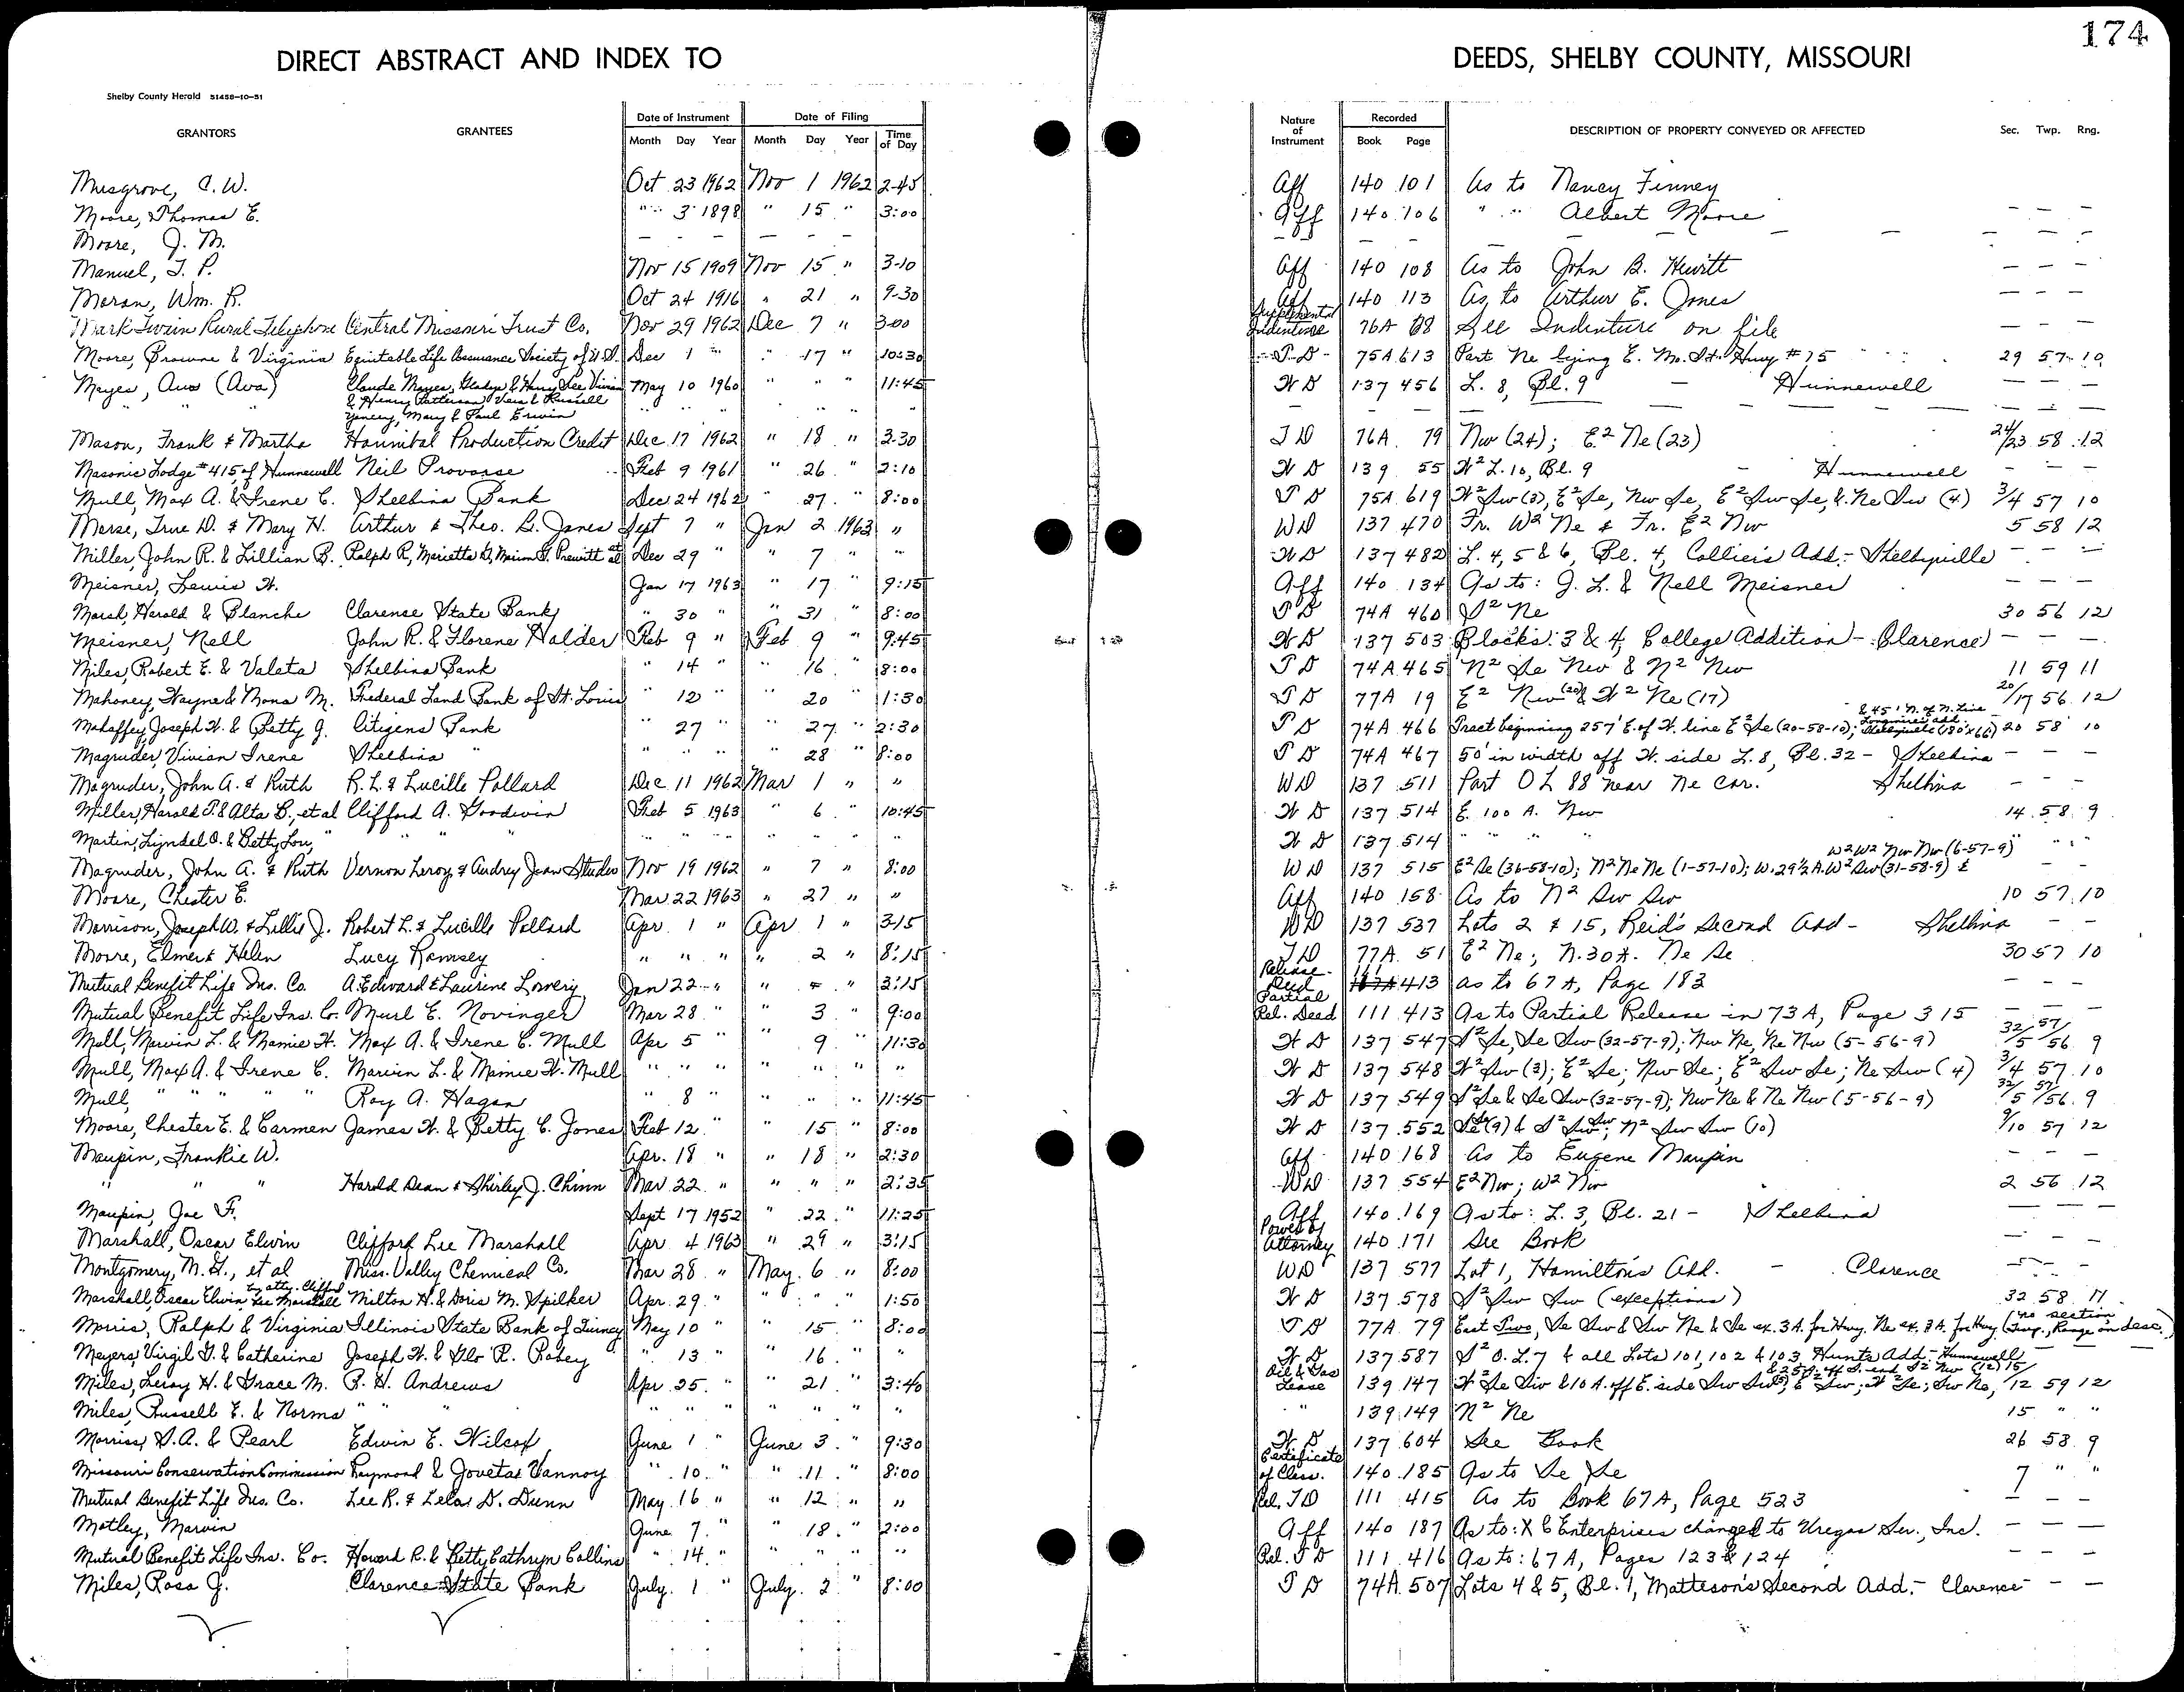 174
DIRECT ABSTRACT AND INDEX TO DEEDS, SHELBY COUNTY, MISSOURI
Shelby County Herald 51458-10-51
GRANTORS GRANTEES Date of Instrument Date of Filing Nature of Instrument Recorded DESCRIPTION OF PROPERTY CONVEYED OR AFFECTED Sec. Twp. Rng.
Month Day Year Month Day Year Time of Day Book Page
Musgrove, C. W. Oct 23 1962 Nov 1 1962 2-45 Aff 140 101 As to Nancy Finney
Moore, Thomas E. " 3 1898 " 15 " 3:00 Aff 140 106 " " Albert Moore — — —
Moore, J. M. — — — — — — — — — — — — —
Manuel, T. P. Nov 15 1909 Nov 15 " 3-10 Aff 140 108 As to John B. Hewitt — — —
Moran, Wm. R. Oct 24 1916 " 21 " 9-30 Aff 140 113 As to Arthur E. Jones — — —
Mark Twain Rural Telephone Central Missouri Trust Co. Nov 29 1962 Dec 7 " 3:00 Supplemental Indenture 76A 88 See Indenture on file — — —
Moore, Browne & Virginia Equitable Life Assurance Society of U.S. Dec 1 " " 17 " 10:30 T D 75A 613 Part Ne lying E. Mo. St. Hwy #15 29 57 10
Mayes, Ava (Ava) Claude Mayes, Gladys & Harry Lee Vivian May 10 1960 " " " 11:45 W D 137 456 L. 8, Bl. 9 — Hunnewell — — —
" " " & Henry Patterson Vera & Russell Yancey, Mary & Paul Erwin " " " " " " " — — —
Mason, Frank & Martha Hannibal Production Credit Dec 17 1962 " 18 " 3-30 T D 76A 79 Nw (24); E² Ne (23) 24/23 58 12
Masonic Lodge #415, of Hunnewell Neil Provorse Feb 9 1961 " 26 " 2:10 W D 139 55 W² L. 10, Bl. 9 — Hunnewell — — —
Mull, Max A. & Irene C. Shelbina Bank Dec 24 1962 " 27 " 8:00 T D 75A 619 W² Sw (3), E² Se, Nw Se, E² Sw Se, & Ne Sw (4) 3/4 57 10
Morse, True D. & Mary H. Arthur & Theo. G. Janes Sept 7 " Jan 2 1963 " WD 137 470 Fr. W² Ne & Fr. E² Nw 5 58 12
Miller, John R. & Lillian B. Ralph R, Marietta G, Prewitt et al Dec 29 " " 7 " " W D 137 482 L. 4, 5 & 6, Bl. 4, Collier's Add.- Shelbyville — — —
Meisner, Lewis H. Jan 17 1963 " 17 " 9:15 Aff 140 134 As to: J. L. & Nell Meisner — — —
Marsh, Herold & Blanche Clarence State Bank " 30 " " 31 " 8:00 T D 74A 460 S² Ne 30 56 12
Meisner, Nell John R. & Florene Halder Feb 9 " Feb 9 " 9:45 W D 137 503 Blocks 3 & 4, College Addition - Clarence — — —
Miles, Robert E. & Valeta Shelbina Bank " 14 " " 16 " 8:00 T D 74A 465 N² Se Nw & N² Nw 11 59 11
Mahoney, Wayne & Mona M. Federal Land Bank of St. Louis " 12 " " 20 " 1:30 T D 77A 19 E² Nw (20) & W² Ne (17) 20/17 56 12
Mahaffey, Joseph W. & Betty J. Citizens Bank " 27 " " 27 " 2:30 T D 74A 466 Tract beginning 257' E. of W. line E² Se (20-58-10); & 45' N. of N. Line (180'x66') 20 58 10
Magruder, Vivian Irene Shelbina " " " " " 28 " 8:00 T D 74A 467 50' in width off W. side L. 8, Bl. 32 - Shelbina — — —
Magruder, John A. & Ruth R. L. & Lucille Pollard Dec 11 1962 Mar 1 " " WD 137 511 Part O L 88 near Ne cor. Shelbina — — —
Miller, Harold T. & Alta B., et al Clifford A. Goodwin Feb 5 1963 " 6 " 10:45 W D 137 514 E. 100 A. Nw 14 58 9
Martin, Lyndel O. & Betty Lou, " " " " " " " " " " W D 137 514 " " " " " " "
Magruder, John A. & Ruth Vernon Leroy & Audrey Jean Studer Nov 19 1962 " 7 " 8:00 WD 137 515 E² Se (36-58-10); N² Ne Ne (1-57-10); W. 29½ A. W² Sw (31-58-9) & W² W² Nw Nw (6-57-9) — —
Moore, Chester E. Mar 22 1963 " 27 " " Aff 140 158 As to N² Sw Sw 10 57 10
Morrison, Joseph W. & Lillie J. Robert L. & Lucille Pollard Apr 1 " Apr 1 " 3:15 WD 137 537 Lots 2 & 15, Reid's Second Add - Shelbina — —
Moore, Elmer & Helen Lucy Ramsey " " " " 2 " 8:15 T D 77A 51 E² Ne; N. 30 A. Ne Se 30 57 10
Mutual Benefit Life Ins. Co. A. Edward & Laurine Lowery Jan 22 " " " " 3:15 Release Deed 111 413 as to 67A, Page 183 — — —
Mutual Benefit Life Ins. Co. Murl E. Novinger Mar 28 " " 3 " 9:00 Partial Rel. Deed 111 413 As to Partial Release in 73A, Page 315 — — —
Mull, Marvin L. & Mamie H. Max A. & Irene C. Mull Apr 5 " " 9 " 11:30 W D 137 547 S² Se, Se Sw (32-57-9); Nw Ne, Ne Nw (5-56-9) 32/5 57/56 9
Mull, Max A. & Irene C. Marvin L. & Mamie H. Mull " " " " " " " W D 137 548 W² Sw (3); E² Se; Nw Se; E² Sw Se; Ne Sw (4) 3/4 57 10
Mull, " " " " Roy A. Hagan " 8 " " " " 11:45 W D 137 549 S² Se & Se Sw (32-57-9); Nw Ne & Ne Nw (5-56-9) 32/5 57/56 9
Moore, Chester E. & Carmen James W. & Betty C. Jones Feb 12 " " 15 " 8:00 W D 137 552 Se Se (9) & S² Sw Sw; N² Sw Sw (10) 9/10 57 12
Maupin, Frankie W. Apr. 18 " " 18 " 2:30 Aff 140 168 As to Eugene Maupin — — —
" " " Harold Dean & Shirley J. Chinn Mar 22 " " " " 2:35 WD 137 554 E² Nw; W² Nw 2 56 12
Maupin, Joe F. Sept 17 1952 " 22 " 11:25 Aff 140 169 As to: L. 3, Bl. 21 - Shelbina — — —
Marshall, Oscar Elwin Clifford Lee Marshall Apr 4 1963 " 29 " 3:15 Power of Attorney 140 171 See Book — — —
Montgomery, M. G., et al Miss. Valley Chemical Co. Mar 28 " May 6 " 8:00 WD 137 577 Lot 1, Hamilton's Add. - Clarence — — —
Marshall, Oscar Elwin by atty. Clifford Lee Marshall Milton H. & Doris M. Spilker Apr. 29 " " " " 1:50 W D 137 578 S² Sw Sw (exceptions) 32 58 11
Morris, Ralph & Virginia Illinois State Bank of Quincy May 10 " " 15 " 8:00 T D 77A 79 East Two, Se Sw & Sw Ne & Se ex. 3 A. for Hwy. Ne ex. 3 A. for Hwy. (no section, Twp., Range on desc.)
Meyers, Virgil G. & Catherine Joseph W. & Glo R. Robey " 13 " " 16 " " W D 137 587 S² O. L. 7 & all Lots 101, 102 & 103 Hunt's Add - Hunnewell
Miles, Leroy H. & Grace M. R. H. Andrews Apr 25 " " 21 " 3:40 Oil & Gas Lease 139 147 W² Se Sw & 10 A. off E. side Sw Sw; E² Sw; W² Se; Sw Ne, & 25 A. off S. end S² Nw (12) 15/12 59 12
Miles, Russell E. & Norma " " " " " " " " " " " 139 149 N² Ne 15 " "
Morriss, S. A. & Pearl Edwin E. Wilcox June 1 " June 3 " 9:30 W D 137 604 See Book 26 58 9
Missouri Conservation Commission Raymond & Joveta Vannoy " 10 " " 11 " 8:00 Certificate of Clear. 140 185 As to Se Se 7 " "
Mutual Benefit Life Ins. Co. Lee R. & Lelas D. Dunn May 16 " " 12 " " Rel. T D 111 415 As to Book 67A, Page 523 — — —
Motley, Marvin June 7 " " 18 " 2:00 Aff 140 187 As to: X C Enterprises changed to Uregas Ser., Inc. — — —
Mutual Benefit Life Ins. Co. Howard R. & Betty Cathryn Collins " 14 " " " " " Rel. T D 111 416 As to: 67A, Pages 123 & 124 — — —
Miles, Rosa J. Clarence State Bank July 1 " July 2 " 8:00 T D 74A 507 Lots 4 & 5, Bl. 1, Matteson's Second Add.- Clarence — —